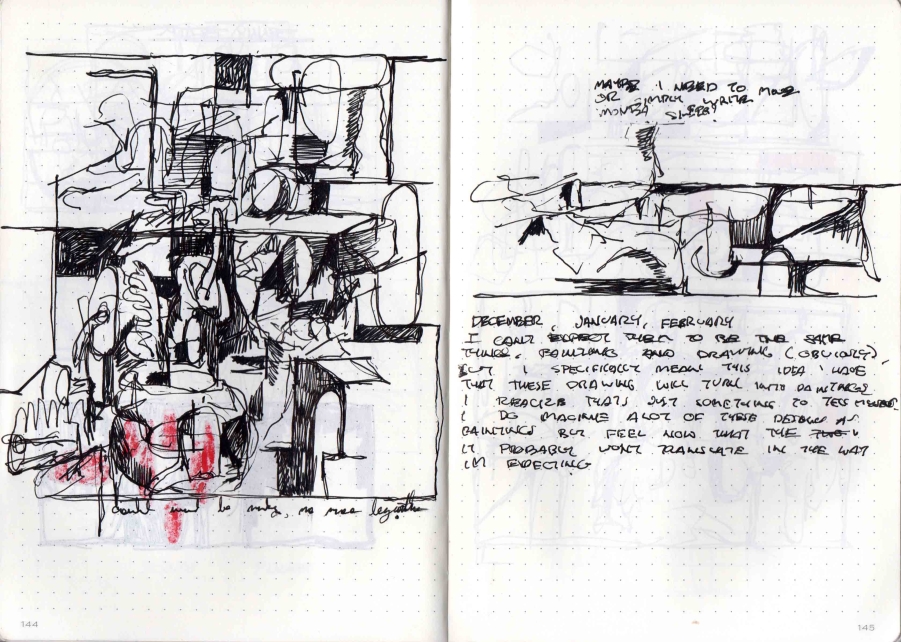 MAYBE I NEED TO MOVE
OR SIMPLY WRITE
SLEEPY
DECEMBER, JANUARY, FEBRUARY
I CAN'T EXPECT THEM TO BE THE SAME
THINGS. PAINTING AND DRAWING (OBVIOUSLY)
BUT I SPECIFICALLY MEAN THIS IDEA I HAVE
THAT THESE DRAWING WILL TURN INTO PAINTINGS.
I REALIZE THAT'S JUST SOMETHING TO TELL
I DO IMAGINE A LOT OF THESE DESIGNS AS
PAINTINGS BUT FEEL NOW THAT THE
IT PROBABLY WON'T TRANSLATE IN THE WAY
I'M EXPECTING
144
145